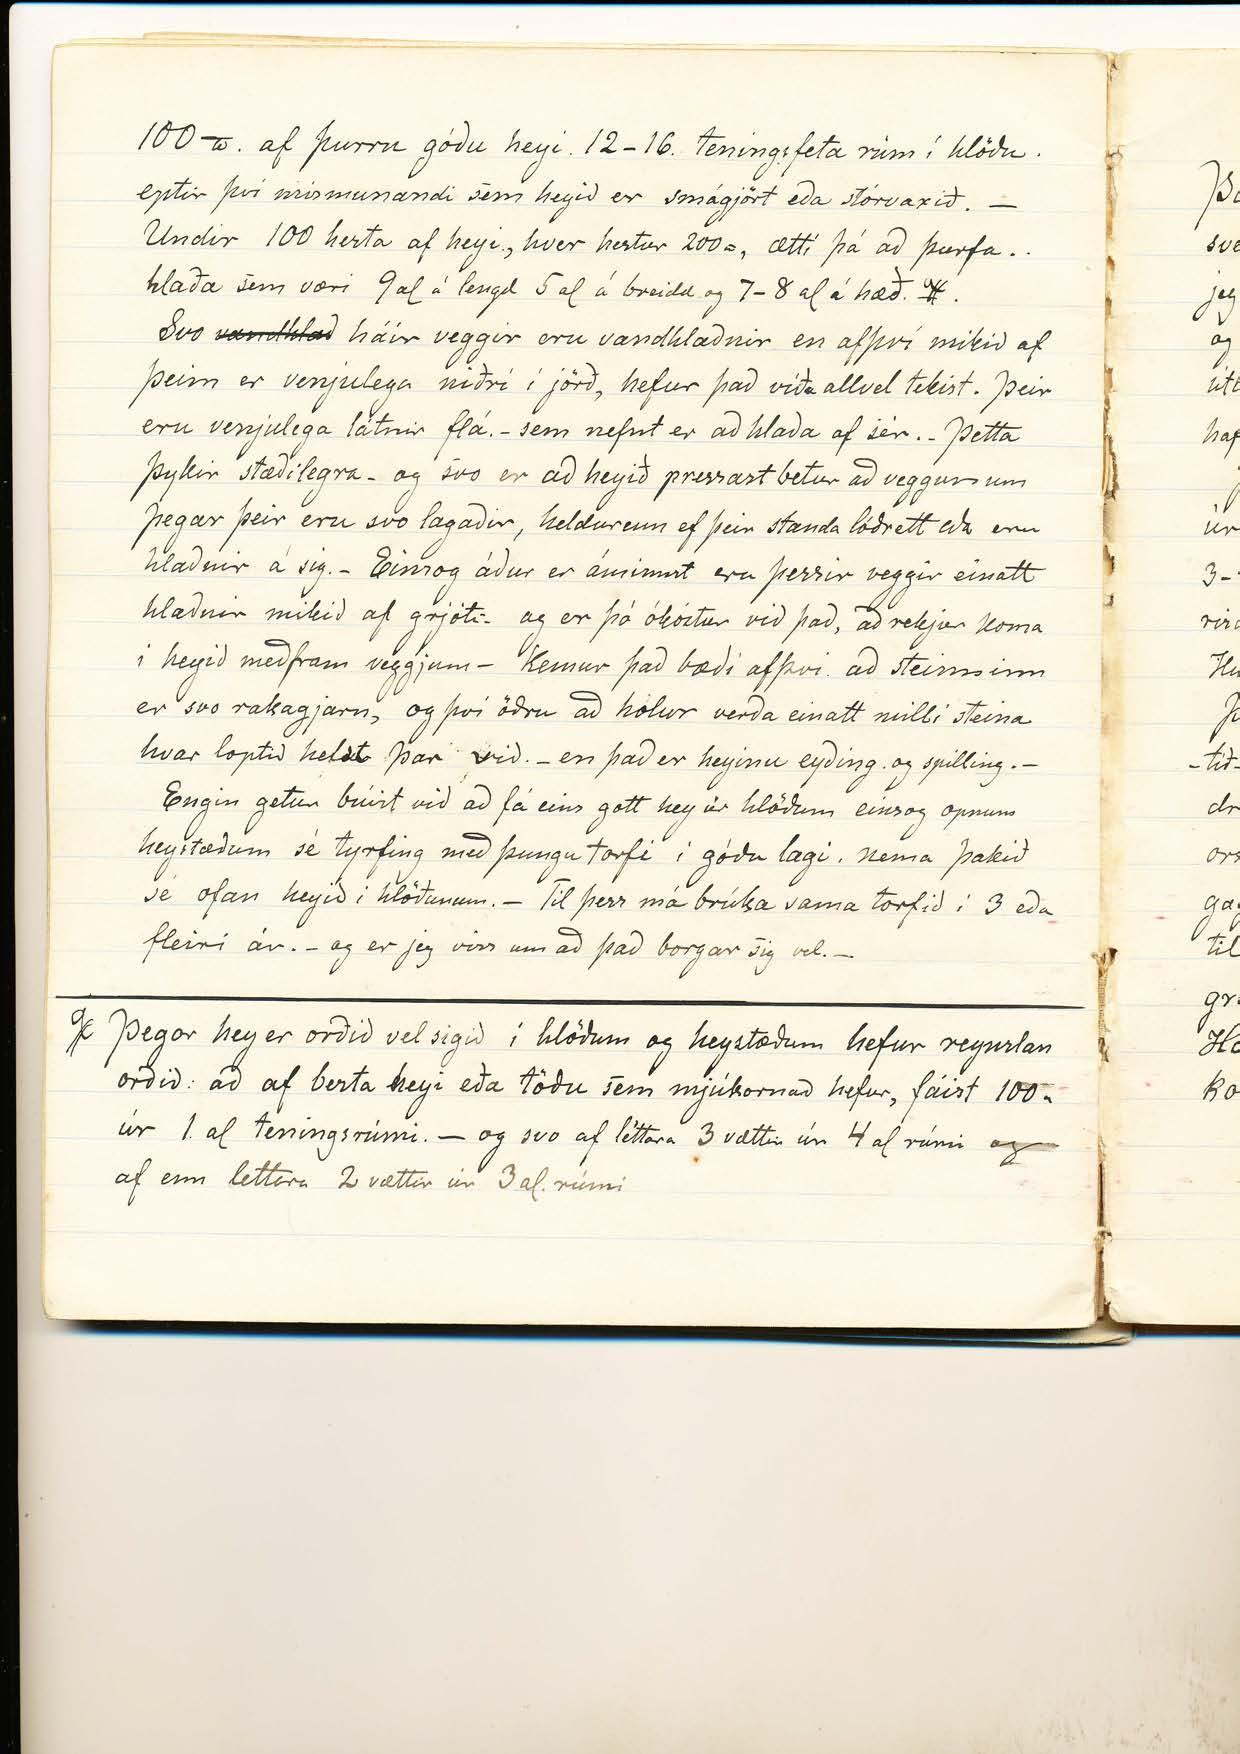 100 ℔. af þurru góðu heyi. 12-16. teningsfeta rúm í hlöðu.
eptir því mismunandi sem heyið er smágjört eða stórvaxið. —
Undir 100 hesta af heyi, hver hestur 200 ℔, ætti þá að þurfa..
hlaða sem væri 9 al á lengd 5 al á breidd og 7-8 al á hæð. ※.
Svo vandhlað háir veggir eru vandhlaðnir en afþví mikið af
þeim er venjulega niðri í jörð, hefur það víða allvel tekist. Þeir
eru venjulega látnir flá. - sem nefnt er að hlaða af sér. - Þetta
þykir stæðilegra - og svo er að heyið pressast betur að veggunum
þegar þeir eru svo lagaðir, heldurenn ef þeir standa lóðrétt eða eru
hlaðnir á sig. - Einsog áður er áminnst eru þessir veggir einatt
hlaðnir mikið af grjóti - og er þó ókostur við það, að rekjur koma
í heyið meðfram veggjum - Kemur það bæði afþví að steinninn
er svo rakagjarn, og því öðru að holur verða einatt milli steina
hvar loptið helst þar við. - en það er heyinu eyðing og spilling. -
Engin getur búist við að fá eins gott hey úr hlöðum einsog opnum
heystæðum sé tyrfing með þungu torfi í góðu lagi. nema þakið
sé ofan heyið í hlöðunum. - Til þess má brúka sama torfið í 3 eða
fleiri ár. - og er jeg viss um að það borgar sig vel. -
※ Þegar hey er orðið vel sigið í hlöðum og heystæðum hefur reynslan
orðið: að af besta heyi eða töðu sem mjúkornað hefur, fáist 100 ℔
úr 1. al teningsrúmi. - og svo af léttara 3 vættir úr 4 al rúmi og
af enn lettara 2 vættir úr 3 al. rúmi